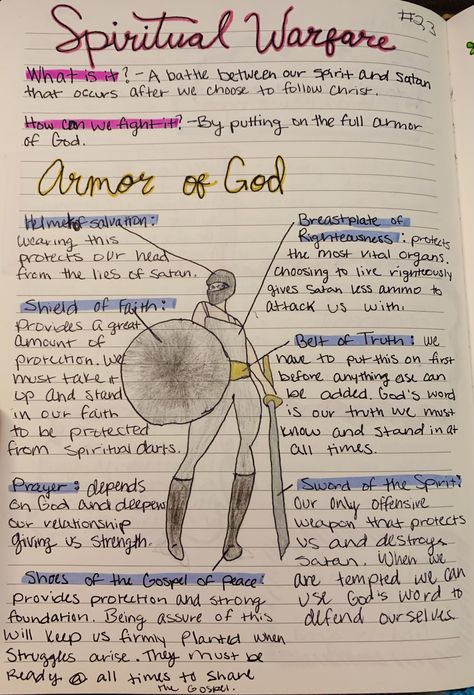 #23
Spiritual Warfare
What is it? - A battle between our spirit and Satan
that occurs after we choose to follow Christ.
How can we fight it? - By putting on the full armor
of God.
Armor of God
Helmet of salvation:
wearing this
protects our head
from the lies of Satan.
Breastplate of
Righteousness: protects
the most vital organs.
choosing to live righteously
gives Satan less ammo to
attack us with.
Shield of Faith:
Provides a great
amount of
protection. We
must take it
up and stand
in our faith
to be protected
from spiritual darts.
Belt of Truth: we
have to put this on first
before anything else can
be added. God's word
is our truth we must
know and stand in at
all times.
Prayer: depends
on God and deepens
our relationship
giving us strength.
Sword of the Spirit:
Our only offensive
weapon that protects
us and destroys
Satan. When we
are tempted we can
use God's word to
defend ourselves
Shoes of the Gospel of Peace:
provides protection and strong
foundation. Being assure of this
will keep us firmly planted when
struggles arise. They must be
Ready @ all times to share
the Gospel.